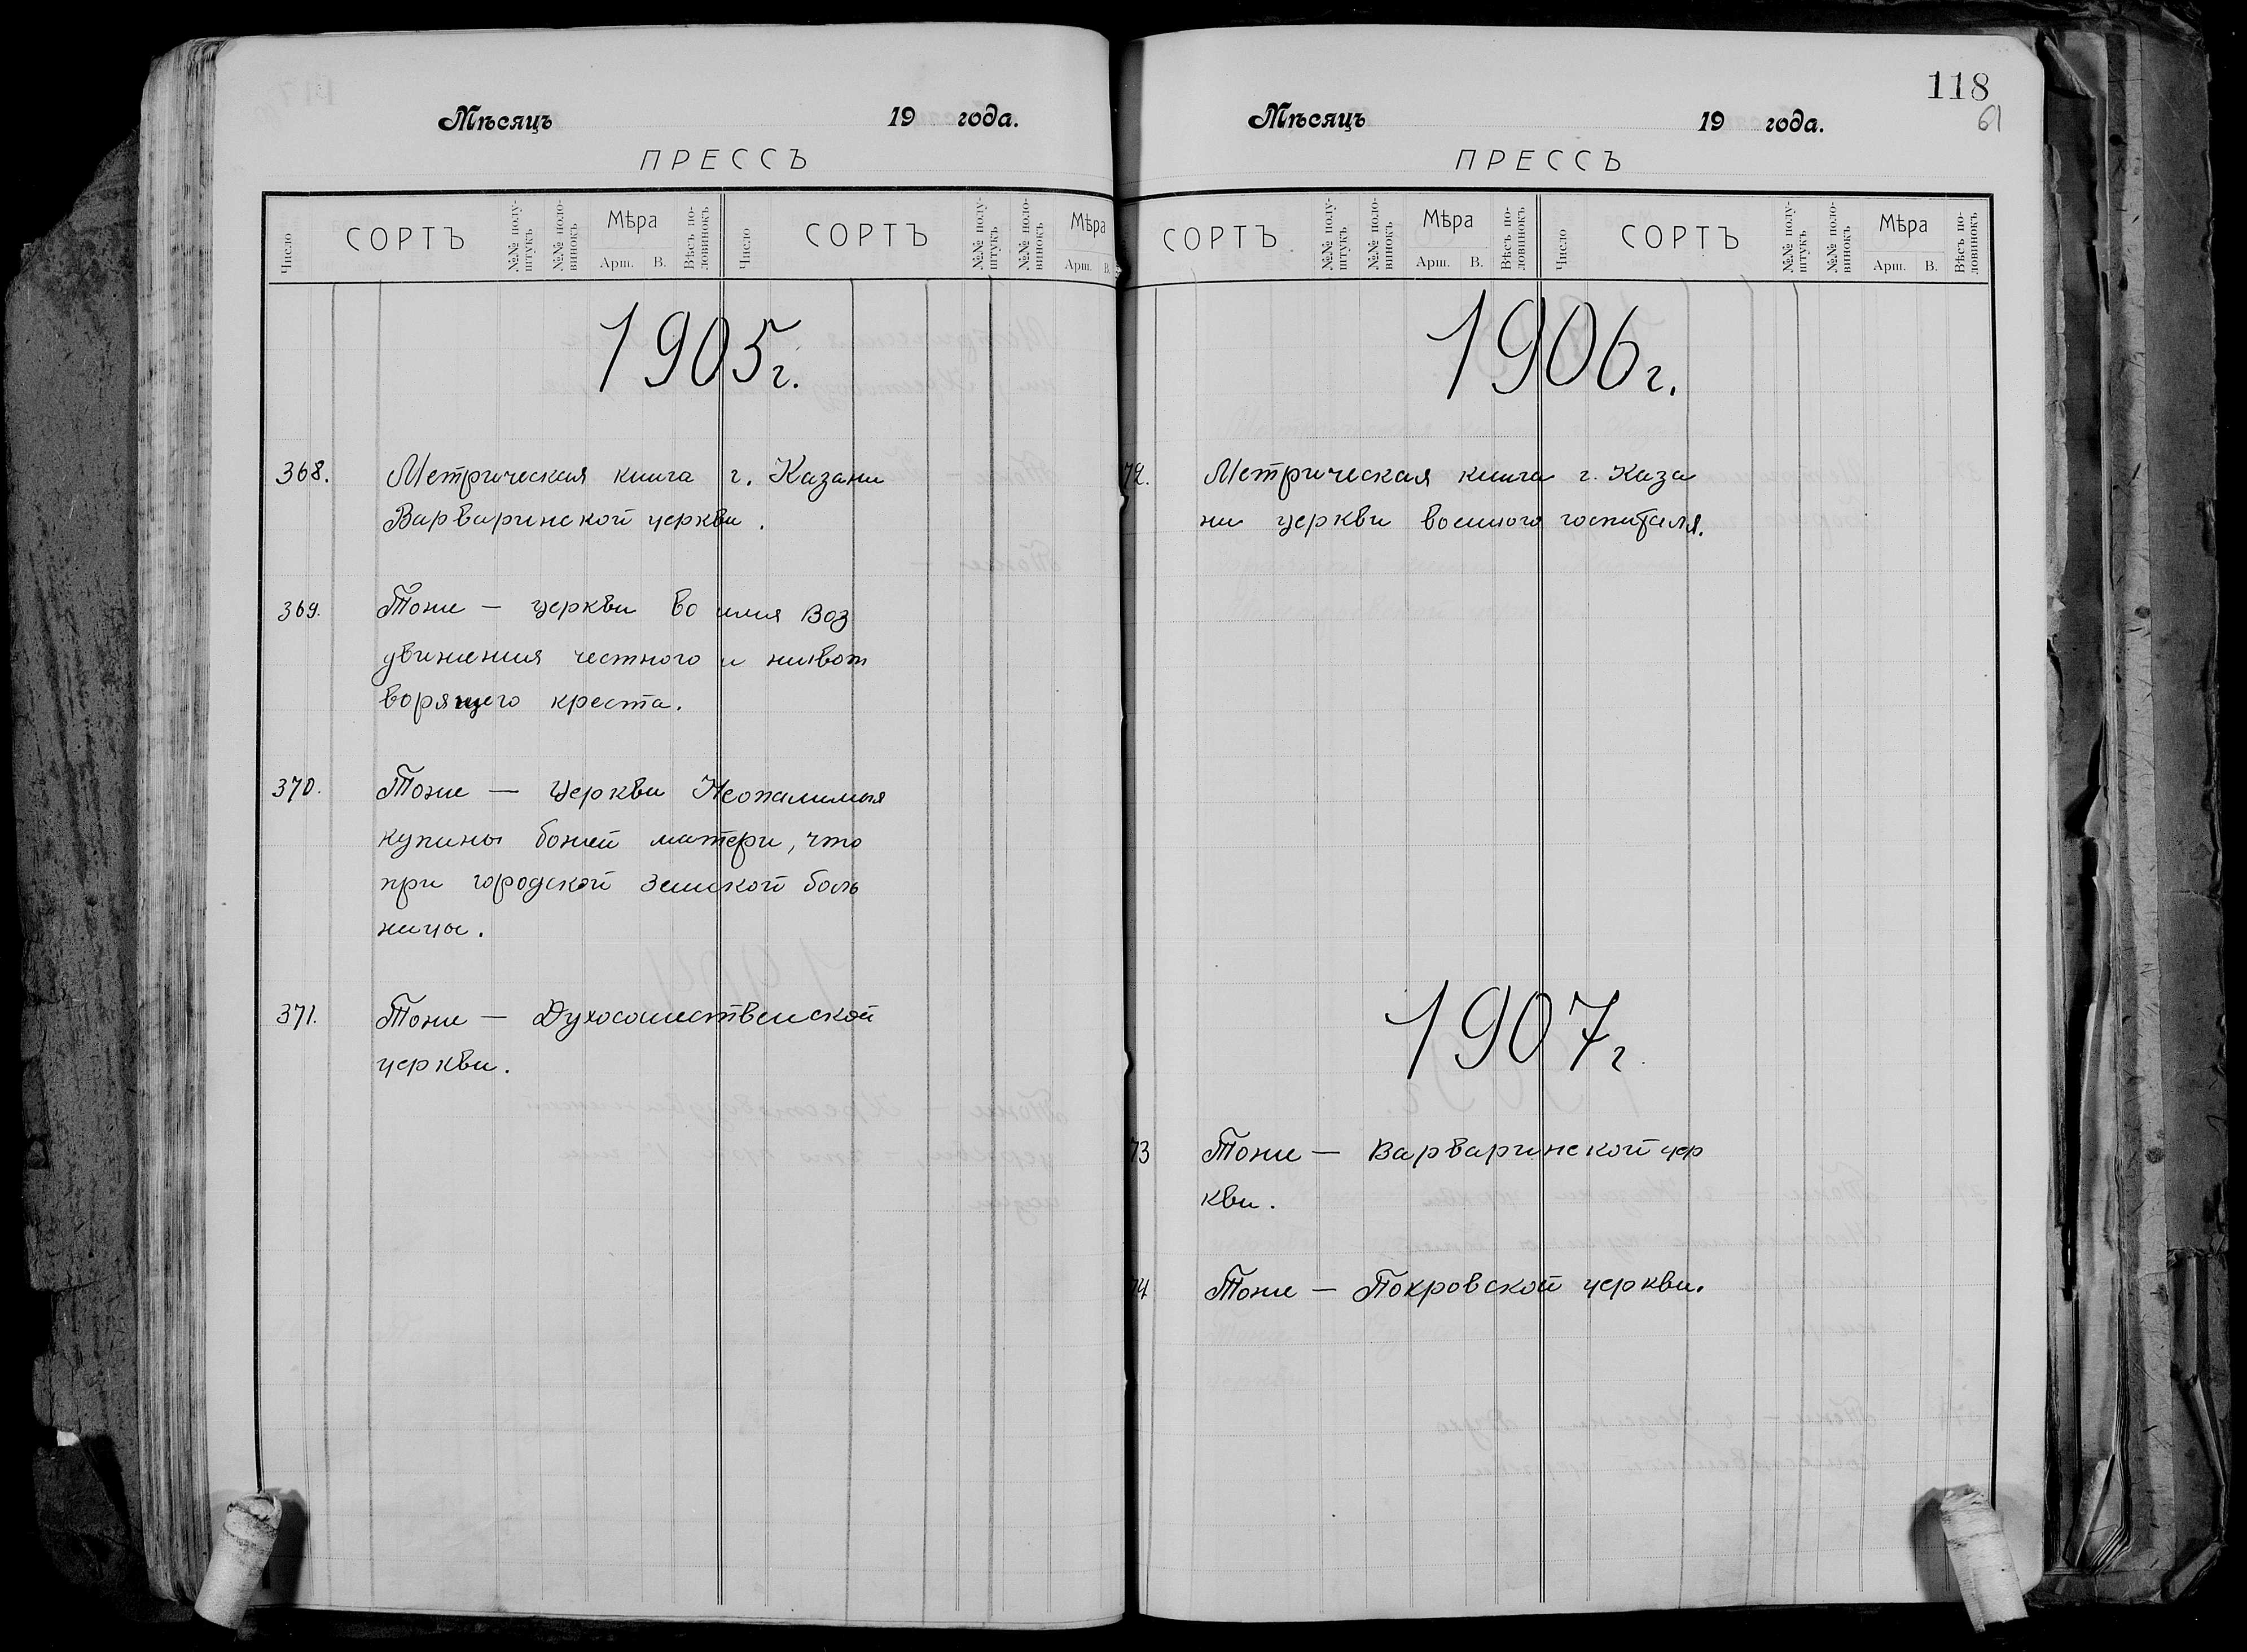 Мѣсяцъ 19 года.
ПРЕССЪ
Число СОРТЪ №№ полу-штукъ №№ поло-винокъ Мѣра Арш. В. Вѣсъ по-ловинокъ Число СОРТЪ №№ полу-штукъ №№ поло-винокъ Мѣра Арш. В.
1905 г.
368. Метрическая книга г. Казани
Варваринской церкви.
369. Тоже — церкви во имя Воз
движения честного и живот
ворящего креста.
370. Тоже — церкви Неопалимыя
купины божией матери, что
при городской земской боль
ницы.
371. Тоже — Духосошественской
церкви.
118
61
Мѣсяцъ 19 года.
ПРЕССЪ
СОРТЪ №№ полу-штукъ №№ поло-винокъ Мѣра Арш. В. Вѣсъ по-ловинокъ Число СОРТЪ №№ полу-штукъ №№ поло-винокъ Мѣра Арш. В. Вѣсъ по-ловинокъ
1906 г.
72. Метрическая книга г. Каза
ни церкви военного госпиталя.
1907 г
73 Тоже — Варваринской цер
кви.
74 Тоже — Покровской церкви.